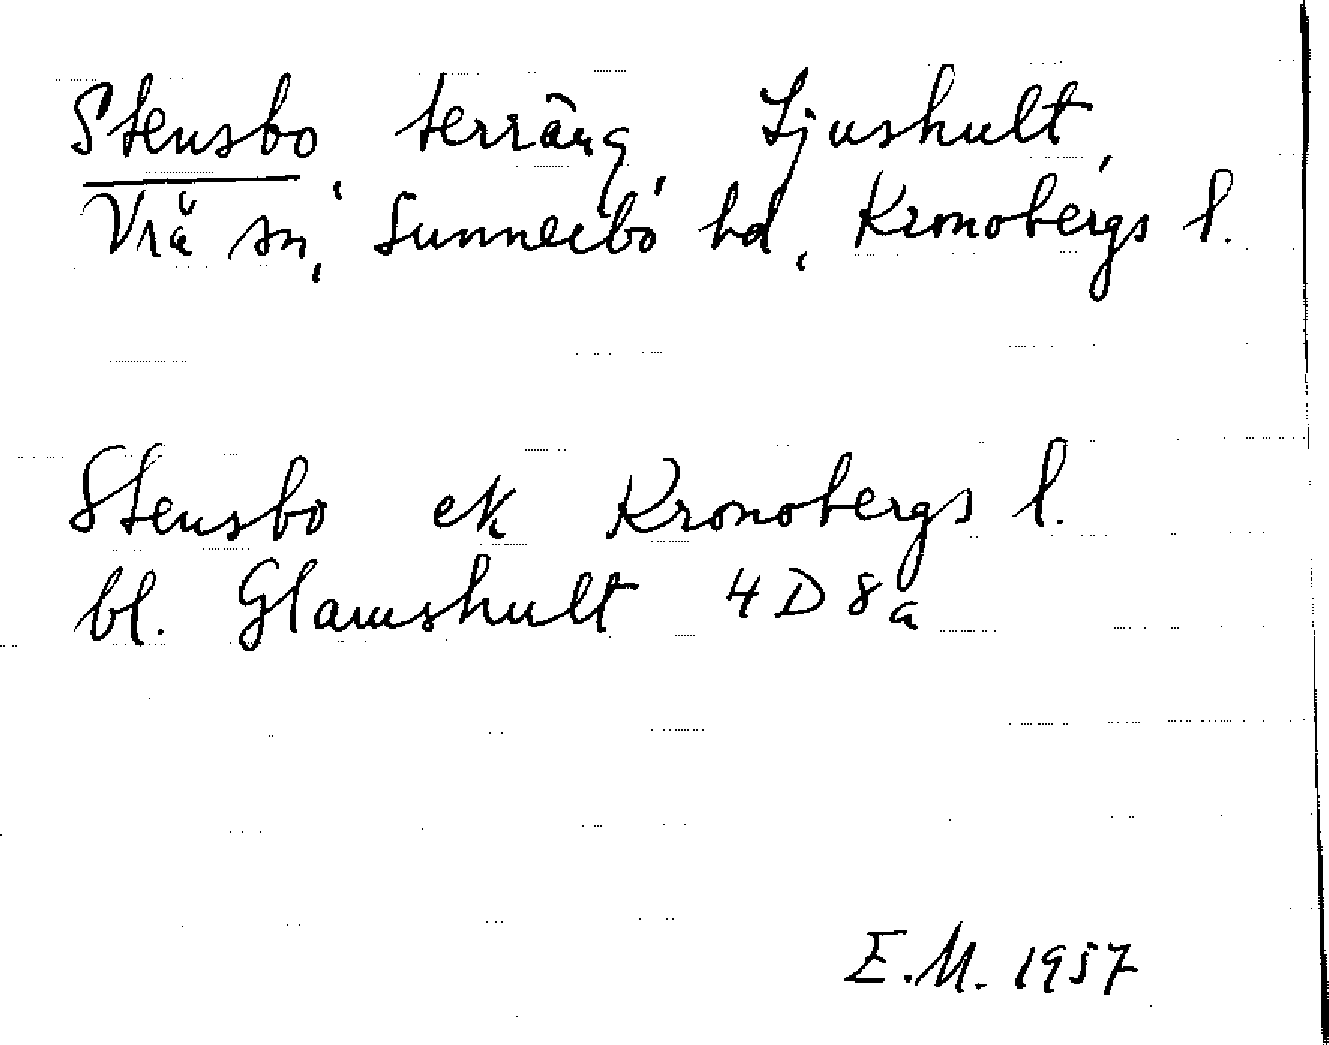 Stensbo, terräng, Ljushult,
Vrå sn, Sunnerbo hd, Kronobergs l.
Stensbo ek Kronobergs l.
bl. Glamshult 4D8a
E.M. 1957